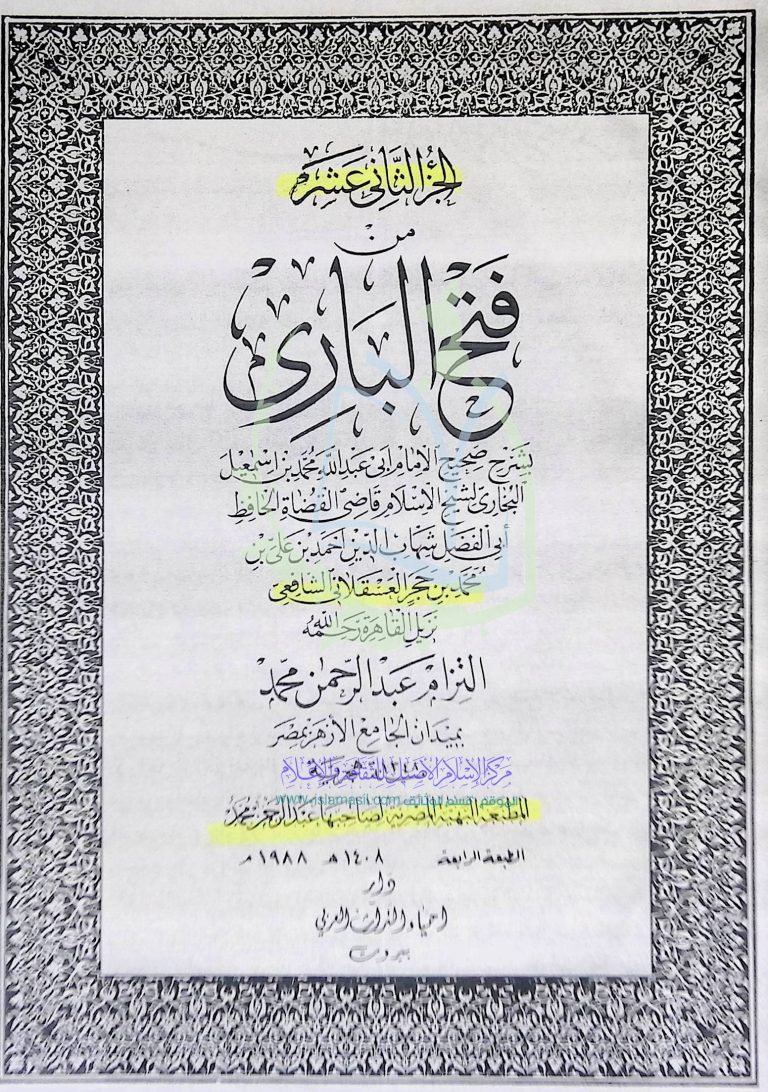 الجُزْءُ الثَّانِي عَشَر
مِنْ
فَتْحُ البَارِي
بشَرْحِ صَحِيحِ الإِمَامِ أبى عَبْدِ اللَّهِ مُحَمَّدِ بْنِ اسْمَعِيل
البُخَارِى لشَيْخِ الإسْلَامِ قَاضِى القُضَاةِ الحَافِظ
أبى الفَضْلِ شِهَابِ الدِّينِ أحْمَدِ بْن عَلىّ بْنِ
مُحَمَّدِ بْنِ حَجَرِ العَسْقَلَانى الشَّافِعى
نَزِيلِ القَاهِرَةِ رَحِمَهُ اللَّهُ
التزَامُ عَبْدِ الرَّحْمٰن مُحَمَّد
بمَيْدَان الجَامِع الأزْهَر بمصْر
مركز الإسلام الأصيل للثقافة والإعلام
www.islamasil.com
المطبعة البهية المصرية لصاحبها عبد الرحمن محمد
الطبعة الرابعة ١٤٠٨ هـ ١٩٨٨ م
دار
احياء التراث العربي
بيروت